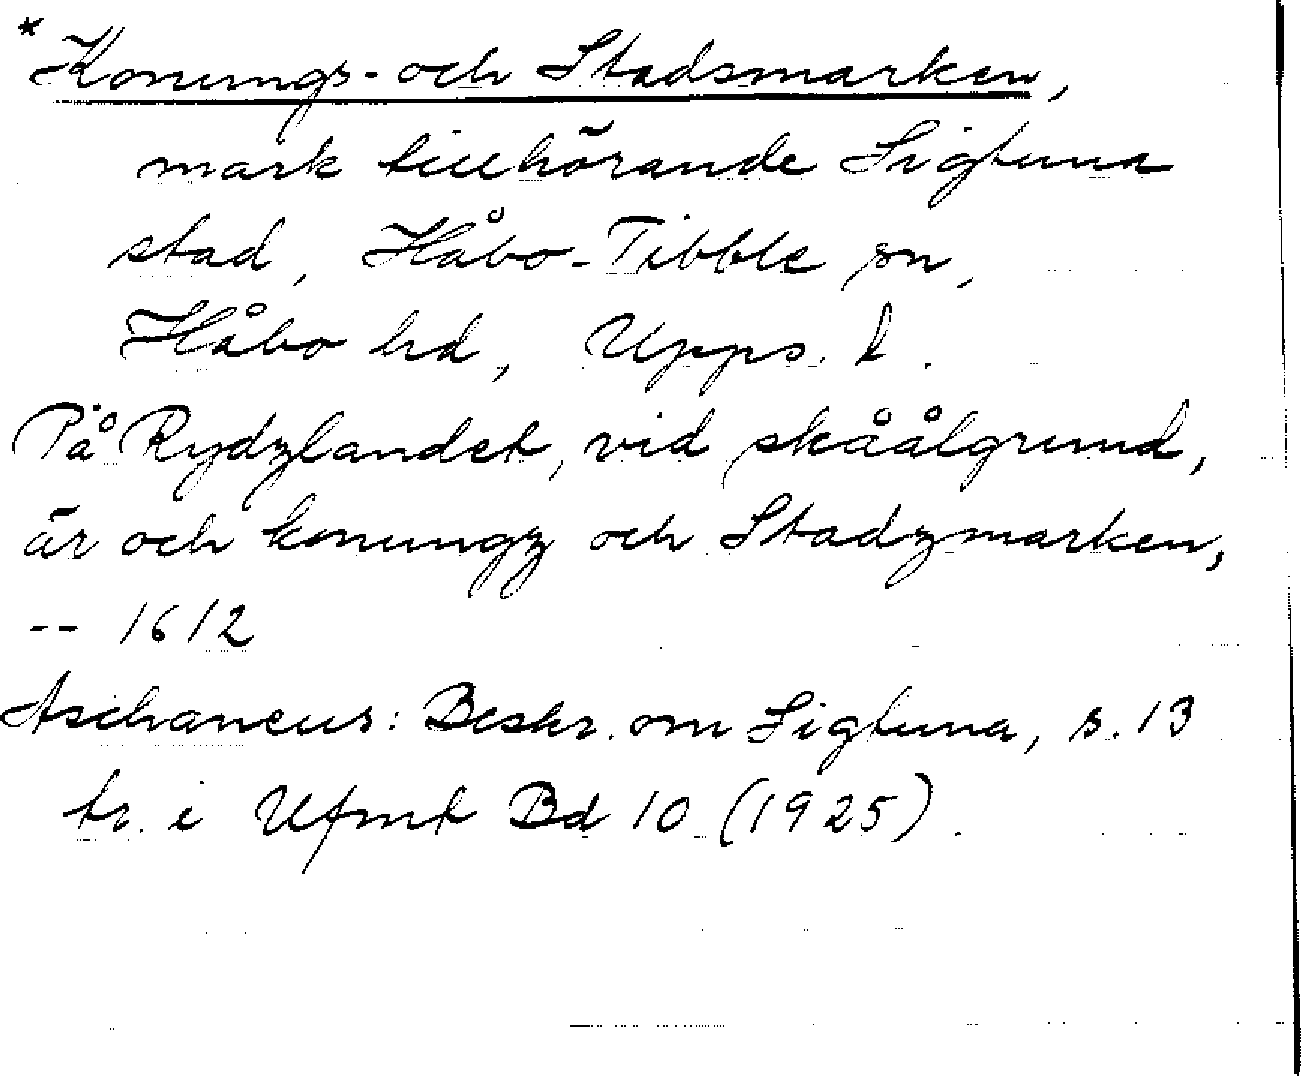 *Konungs- och Stadsmarken,
mark tillhörande Sigtuna
stad, Håbo-Tibble sn,
Håbo hd, Upps. l.
På Rydzlandet, vid skåålgrund,
är och konungz och Stadzmarken,
-- 1612
Aschaneus: Beskr. om Sigtuna, s. 13
tr. i Ufmt Bd 10 (1925).